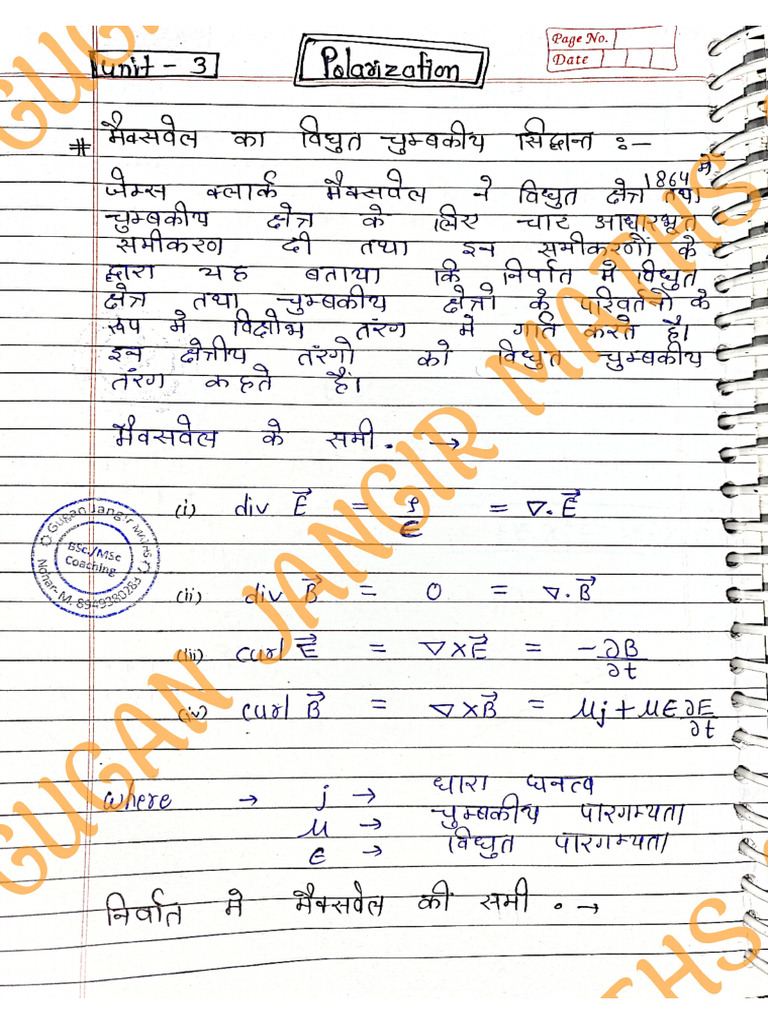 Page No.
Date
Unit - 3
Polarization
# मैक्सवेल का विधुत चुम्बकीय सिद्धान्त :-
जेम्स क्लार्क मैक्सवेल ने 1864 में विधुत क्षेत्र तथा
चुम्बकीय क्षेत्र के लिए चार आधारभूत
समीकरण दी तथा इन समीकरणों के
द्वारा यह बताया कि निर्वात मे विधुत
क्षेत्र तथा चुम्बकीय क्षेत्रो के परिवर्तनो के
रूप मे विक्षोभ तरंग मे गति करते है।
इन क्षेत्रीय तरंगो को विधुत चुम्बकीय
तरंग कहते हैं।
मैक्सवेल के समी. →
(i) div E⃗ = ρ/ϵ = ∇.E⃗
(ii) div B⃗ = 0 = ∇.B⃗
(iii) curl E⃗ = ∇×E⃗ = -∂B/∂t
(iv) curl B⃗ = ∇×B⃗ = μj + μϵ ∂E/∂t
where → j → धारा घनत्व
μ → चुम्बकीय पारगम्यता
ϵ → विधुत पारगम्यता
निर्वात मे मैक्सवेल की समी. →
Gugan Jangir MATHS
BSc./MSc
Coaching
Nohar- M. 8949380289
GUGAN JANGIR MATHS